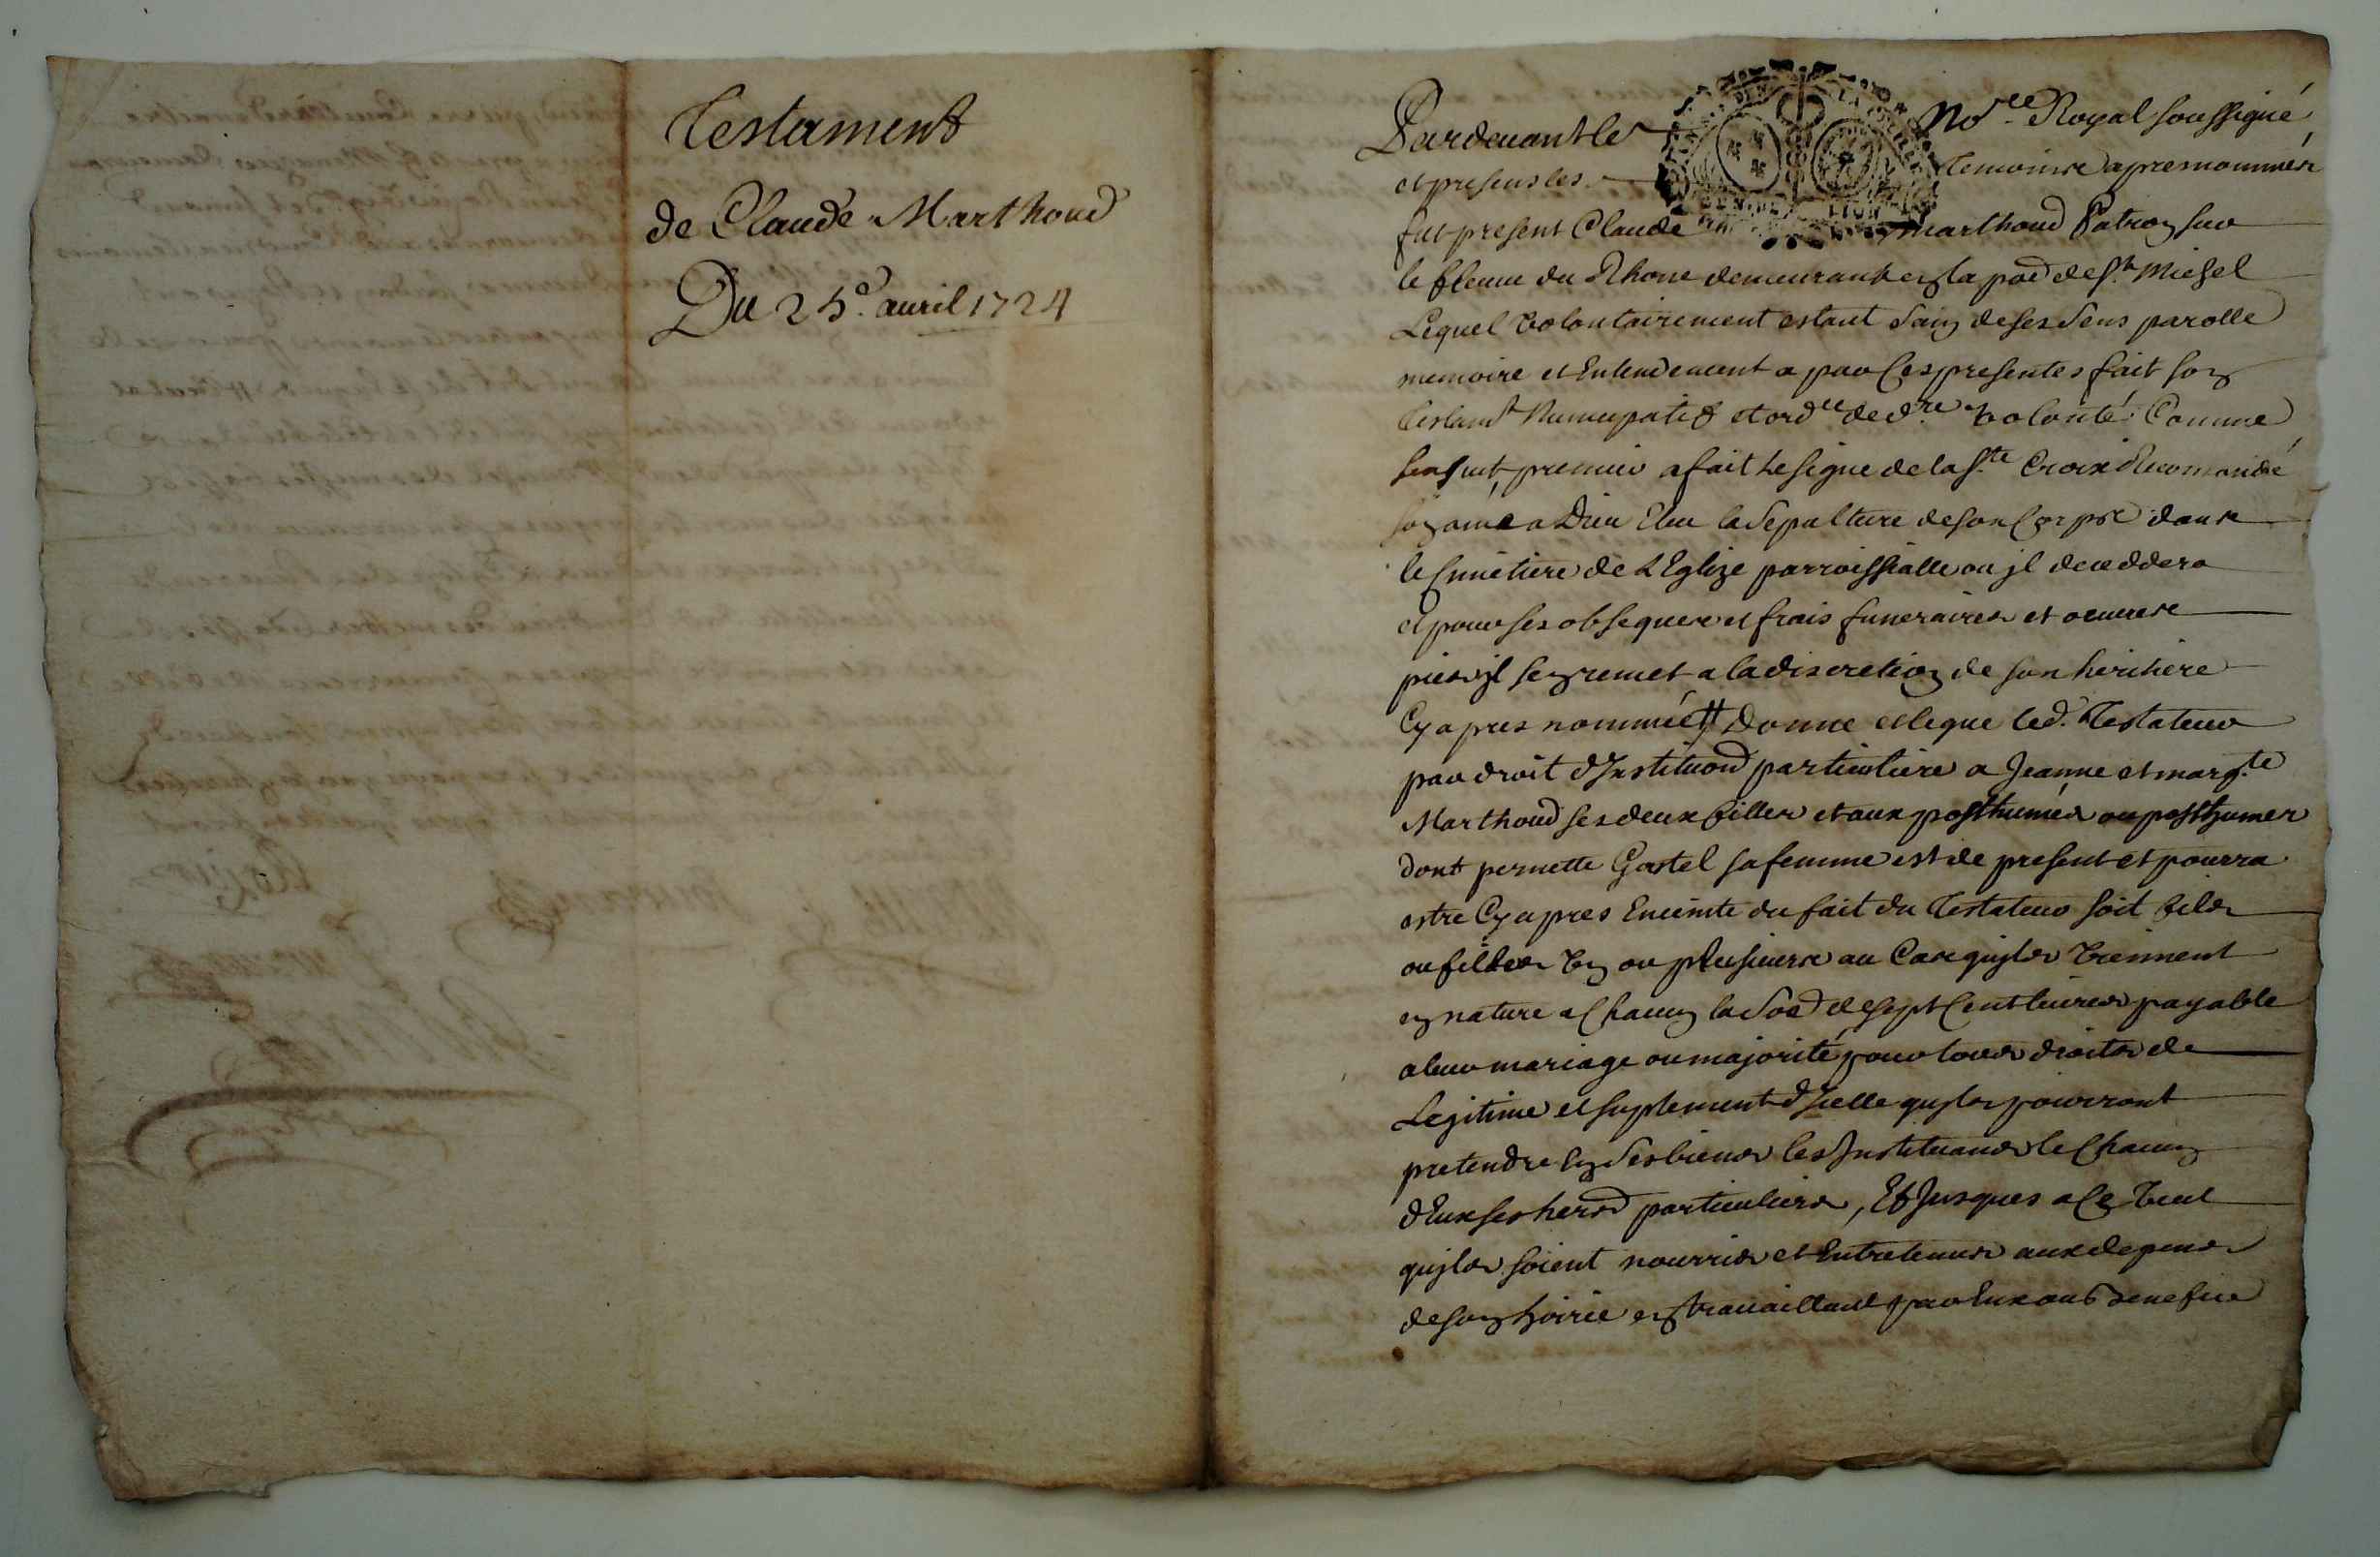 Testament
de Claude Marthoud
Du 25e. auril 1724
Pardeuant le Nore Royal soussigné
et presens les temoins apres nommés
fut present Claude Marthoud Patron sur
le fleuue du Rhone demeurant en la pad de St. Michel
Lequel volontairement estant sain de ses sens parolle
memoire et Entendement a par ces presentes fait son
testamt Nuncupatif et ordce de dre volonté Comme
sensuit, premier a fait le signe de la Ste Croix Recomandé
son ame a Dieu Eleu la Sepulture de son Corps dans
le Cimetiere de L'Eglize parroissialle ou jl deceddera
et pour ses obseques et frais funeraires et oeuures
pies jl sen remet a la discretion de son heritiere
Cy apres nommée Donne et legue led. Testateur
par droit d'Institiond particuliere a Jeanne et margte
Marthoud ses deux filles et aux posthumes ou posthumes
dont pernette Gastel sa femme est de present et pourra
estre Cy apres Enceinte du fait du Testateur soit fils
ou filles vn ou plusieurs au Cas qujls viennent
en nature a Chacun la Soe de sept Cent liures payable
a leur mariage ou majorité pour tous droits de
Legitime et suplement d'Jcelle qujls pourront
pretendre En ses biens les Jnstituans le Chacun
d'Eux ses hers particuliers, Et Jusques a Ce veut
qujls soient nourris et Entretenus aux depens
de son hoirie en trauaillant par Eux au benefice